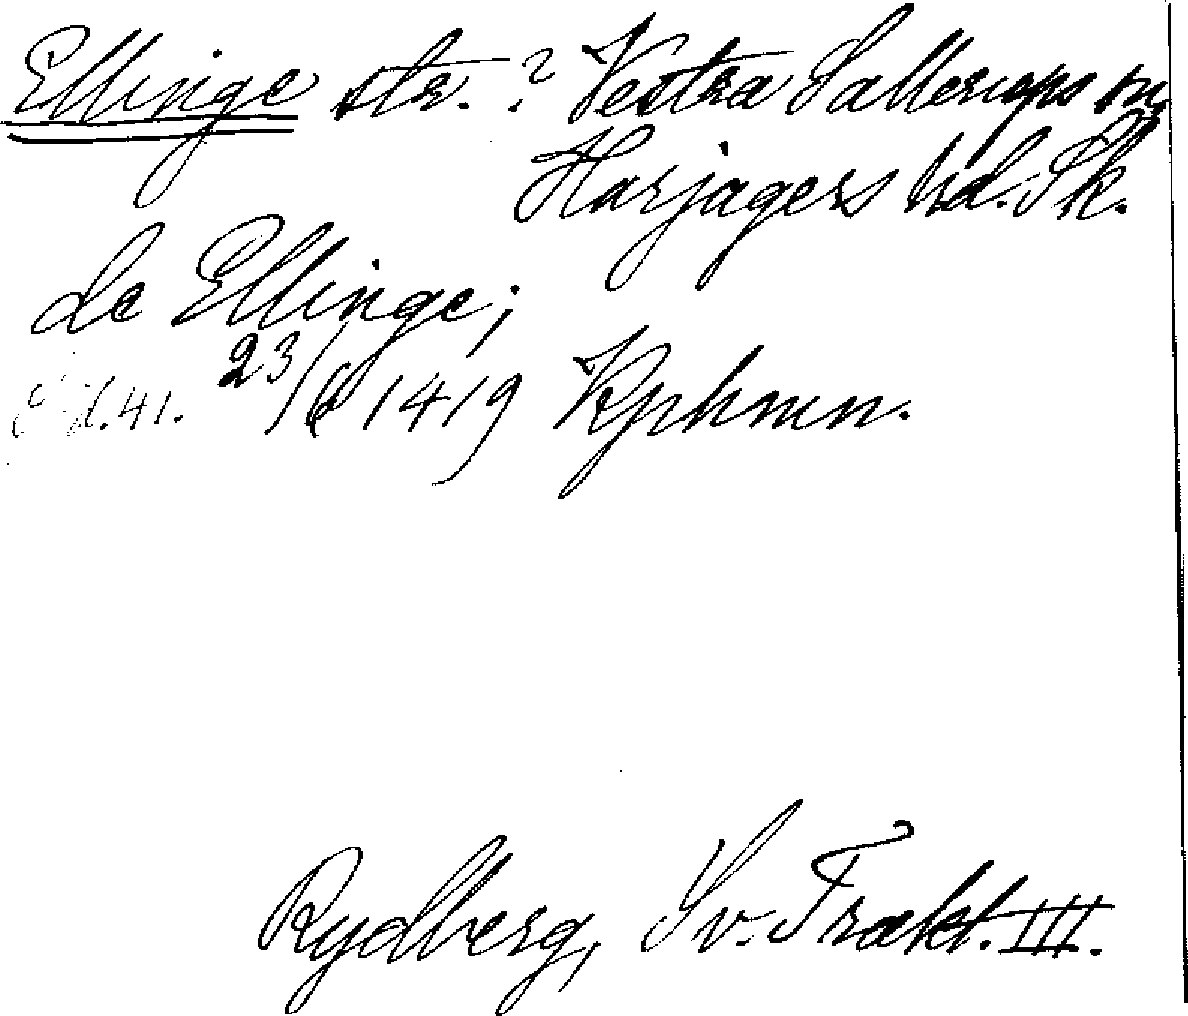 Ellinge str. ? Vestra Sallerups sn,
Harjagers hd. Sk.
de Ellinge;
23/6 1419 Kphmn.
d. 41.
Rydberg, Sv. Trakt. III.